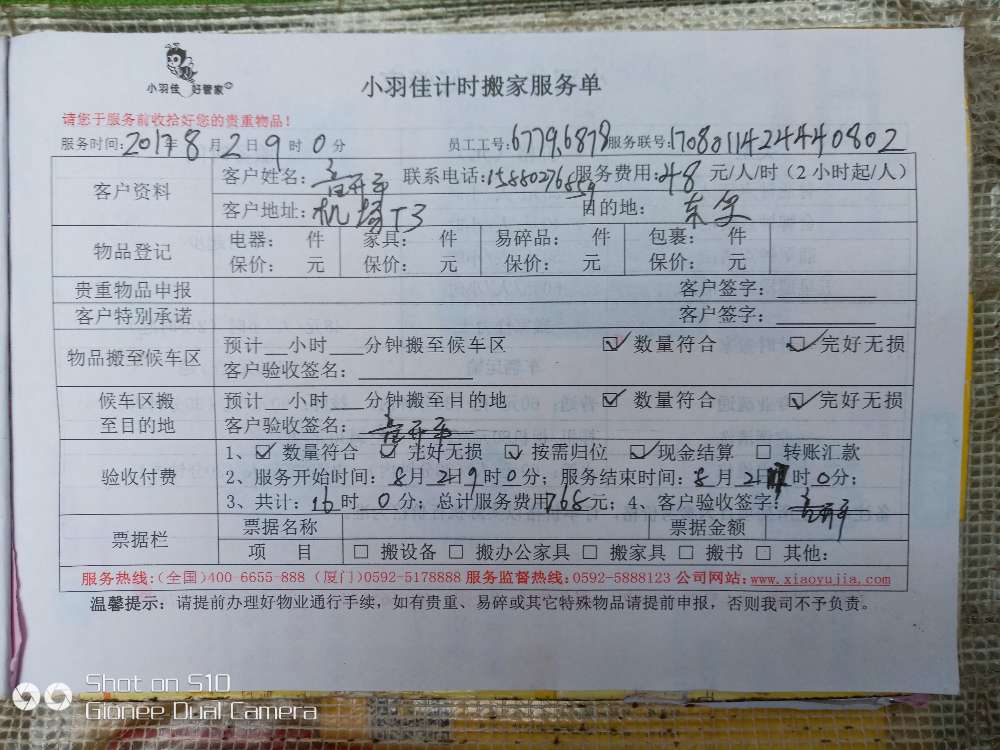 小羽佳 好管家
小羽佳计时搬家服务单
请您于服务前收拾好您的贵重物品!
服务时间:2017年8月2日9时0分 员工工号:6779,6878 服务联号:170801142444440802
客户资料 客户姓名: 联系电话:15880276859 服务费用:48元/人/时(2小时起/人)
客户地址:机场T3 目的地:东
物品登记 电器: 件 家具: 件 易碎品: 件 包裹: 件
保价: 元 保价: 元 保价: 元 保价: 元
贵重物品申报 客户签字:
客户特别承诺 客户签字:
物品搬至候车区 预计__小时___分钟搬至候车区 ☑数量符合 ☑完好无损
客户验收签名:
候车区搬至目的地 预计__小时___分钟搬至目的地 ☑数量符合 ☑完好无损
客户验收签名:
验收付费 1、☑数量符合 ☑完好无损 ☑按需归位 ☑现金结算 □转账汇款
2、服务开始时间:8月2日9时0分;服务结束时间:8月2日 时0分;
3、共计:16时0分;总计服务费用768元;4、客户验收签字:
票据栏 票据名称 票据金额
项 目 □搬设备 □搬办公家具 □搬家具 □搬书 □其他:
服务热线:(全国)400-6655-888(厦门)0592-5178888 服务监督热线:0592-5888123 公司网站:www.xiaoyujia.com
温馨提示:请提前办理好物业通行手续,如有贵重、易碎或其它特殊物品请提前申报,否则我司不予负责。
Shot on S10
Gionee Dual Camera